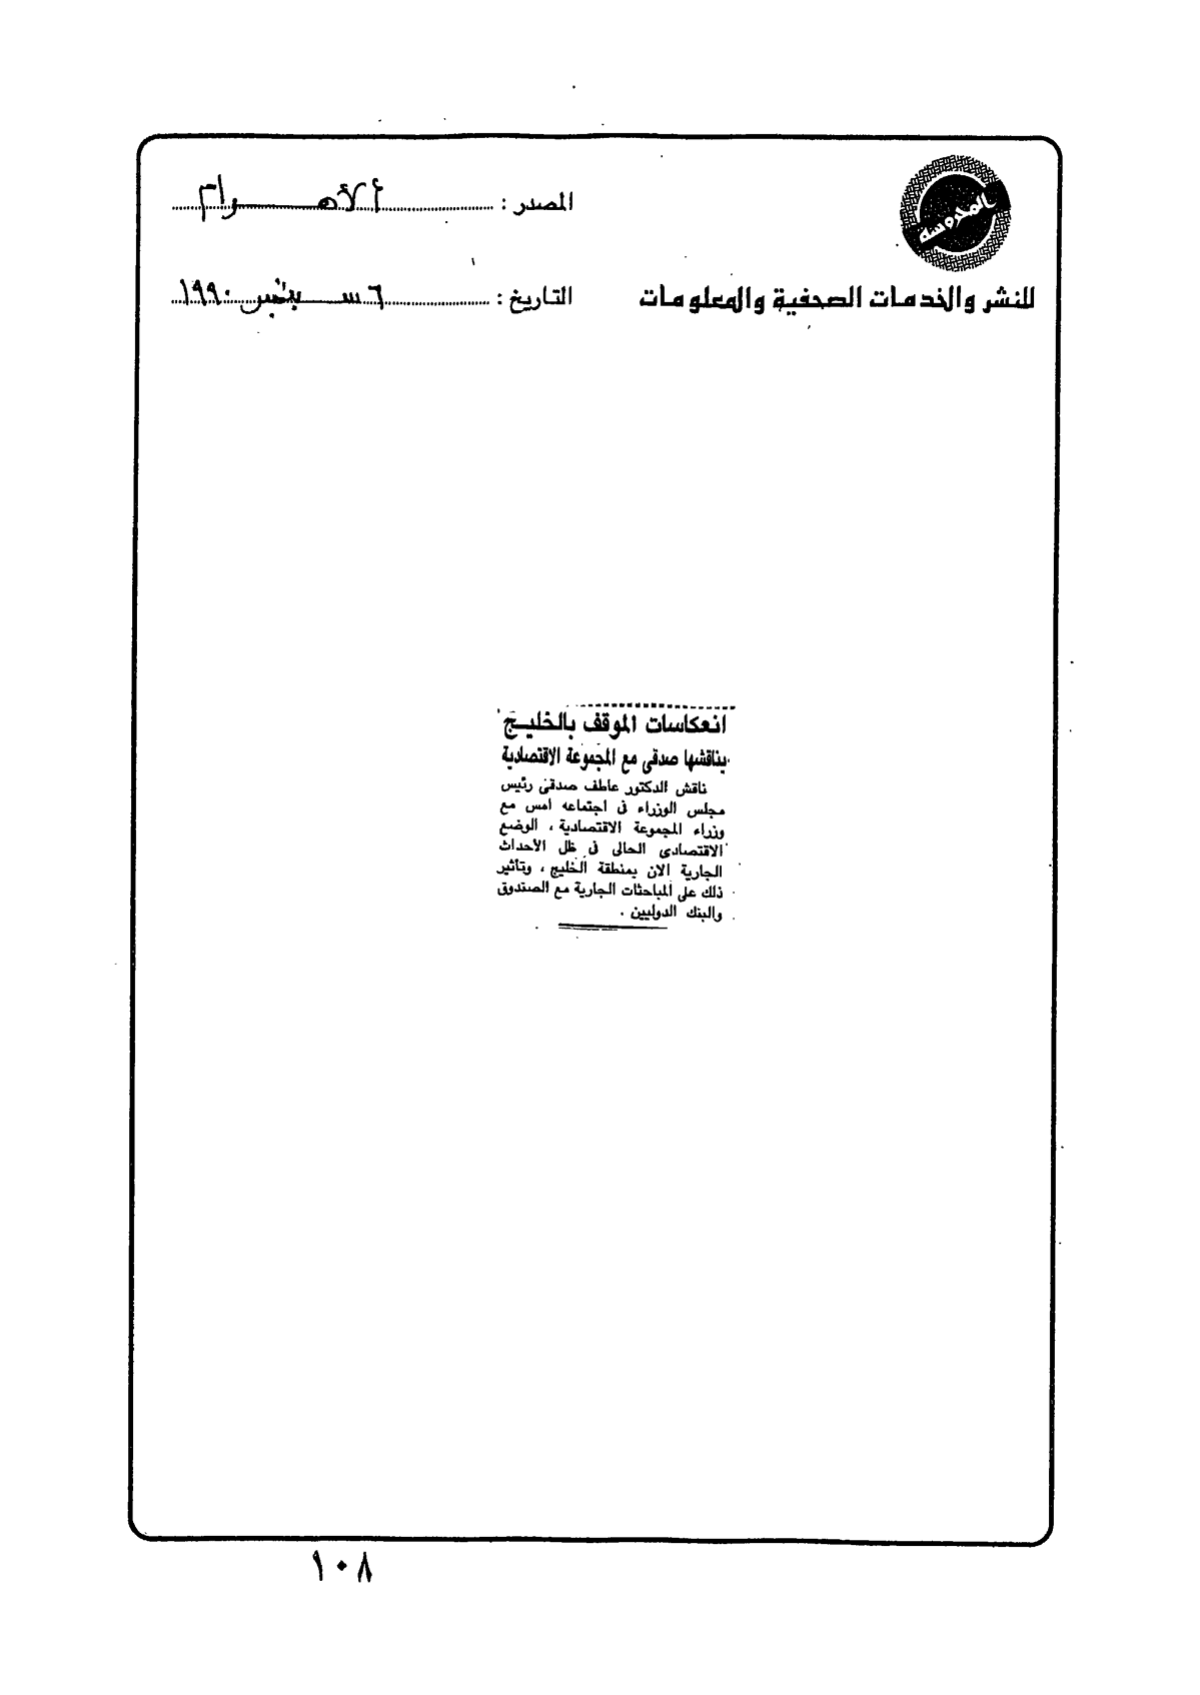 المحروسة
للنشر والخدمات الصحفية والمعلومات
المصدر : الأهـــرام
التاريخ : ٦ سبتمبر ١٩٩٠
انعكاسات الموقف بالخليج
يناقشها صدقى مع المجموعة الاقتصادية
ناقش الدكتور عاطف صدقى رئيس
مجلس الوزراء فى اجتماعه امس مع
وزراء المجموعة الاقتصادية ، الوضع
الاقتصادى الحالى فى ظل الأحداث
الجارية الان بمنطقة الخليج ، وتأثير
ذلك على المباحثات الجارية مع الصندوق
والبنك الدوليين .
١٠٨